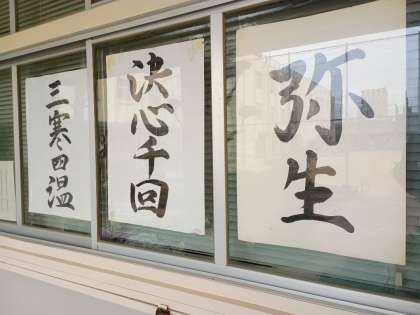 弥生
決心千回
三寒四温